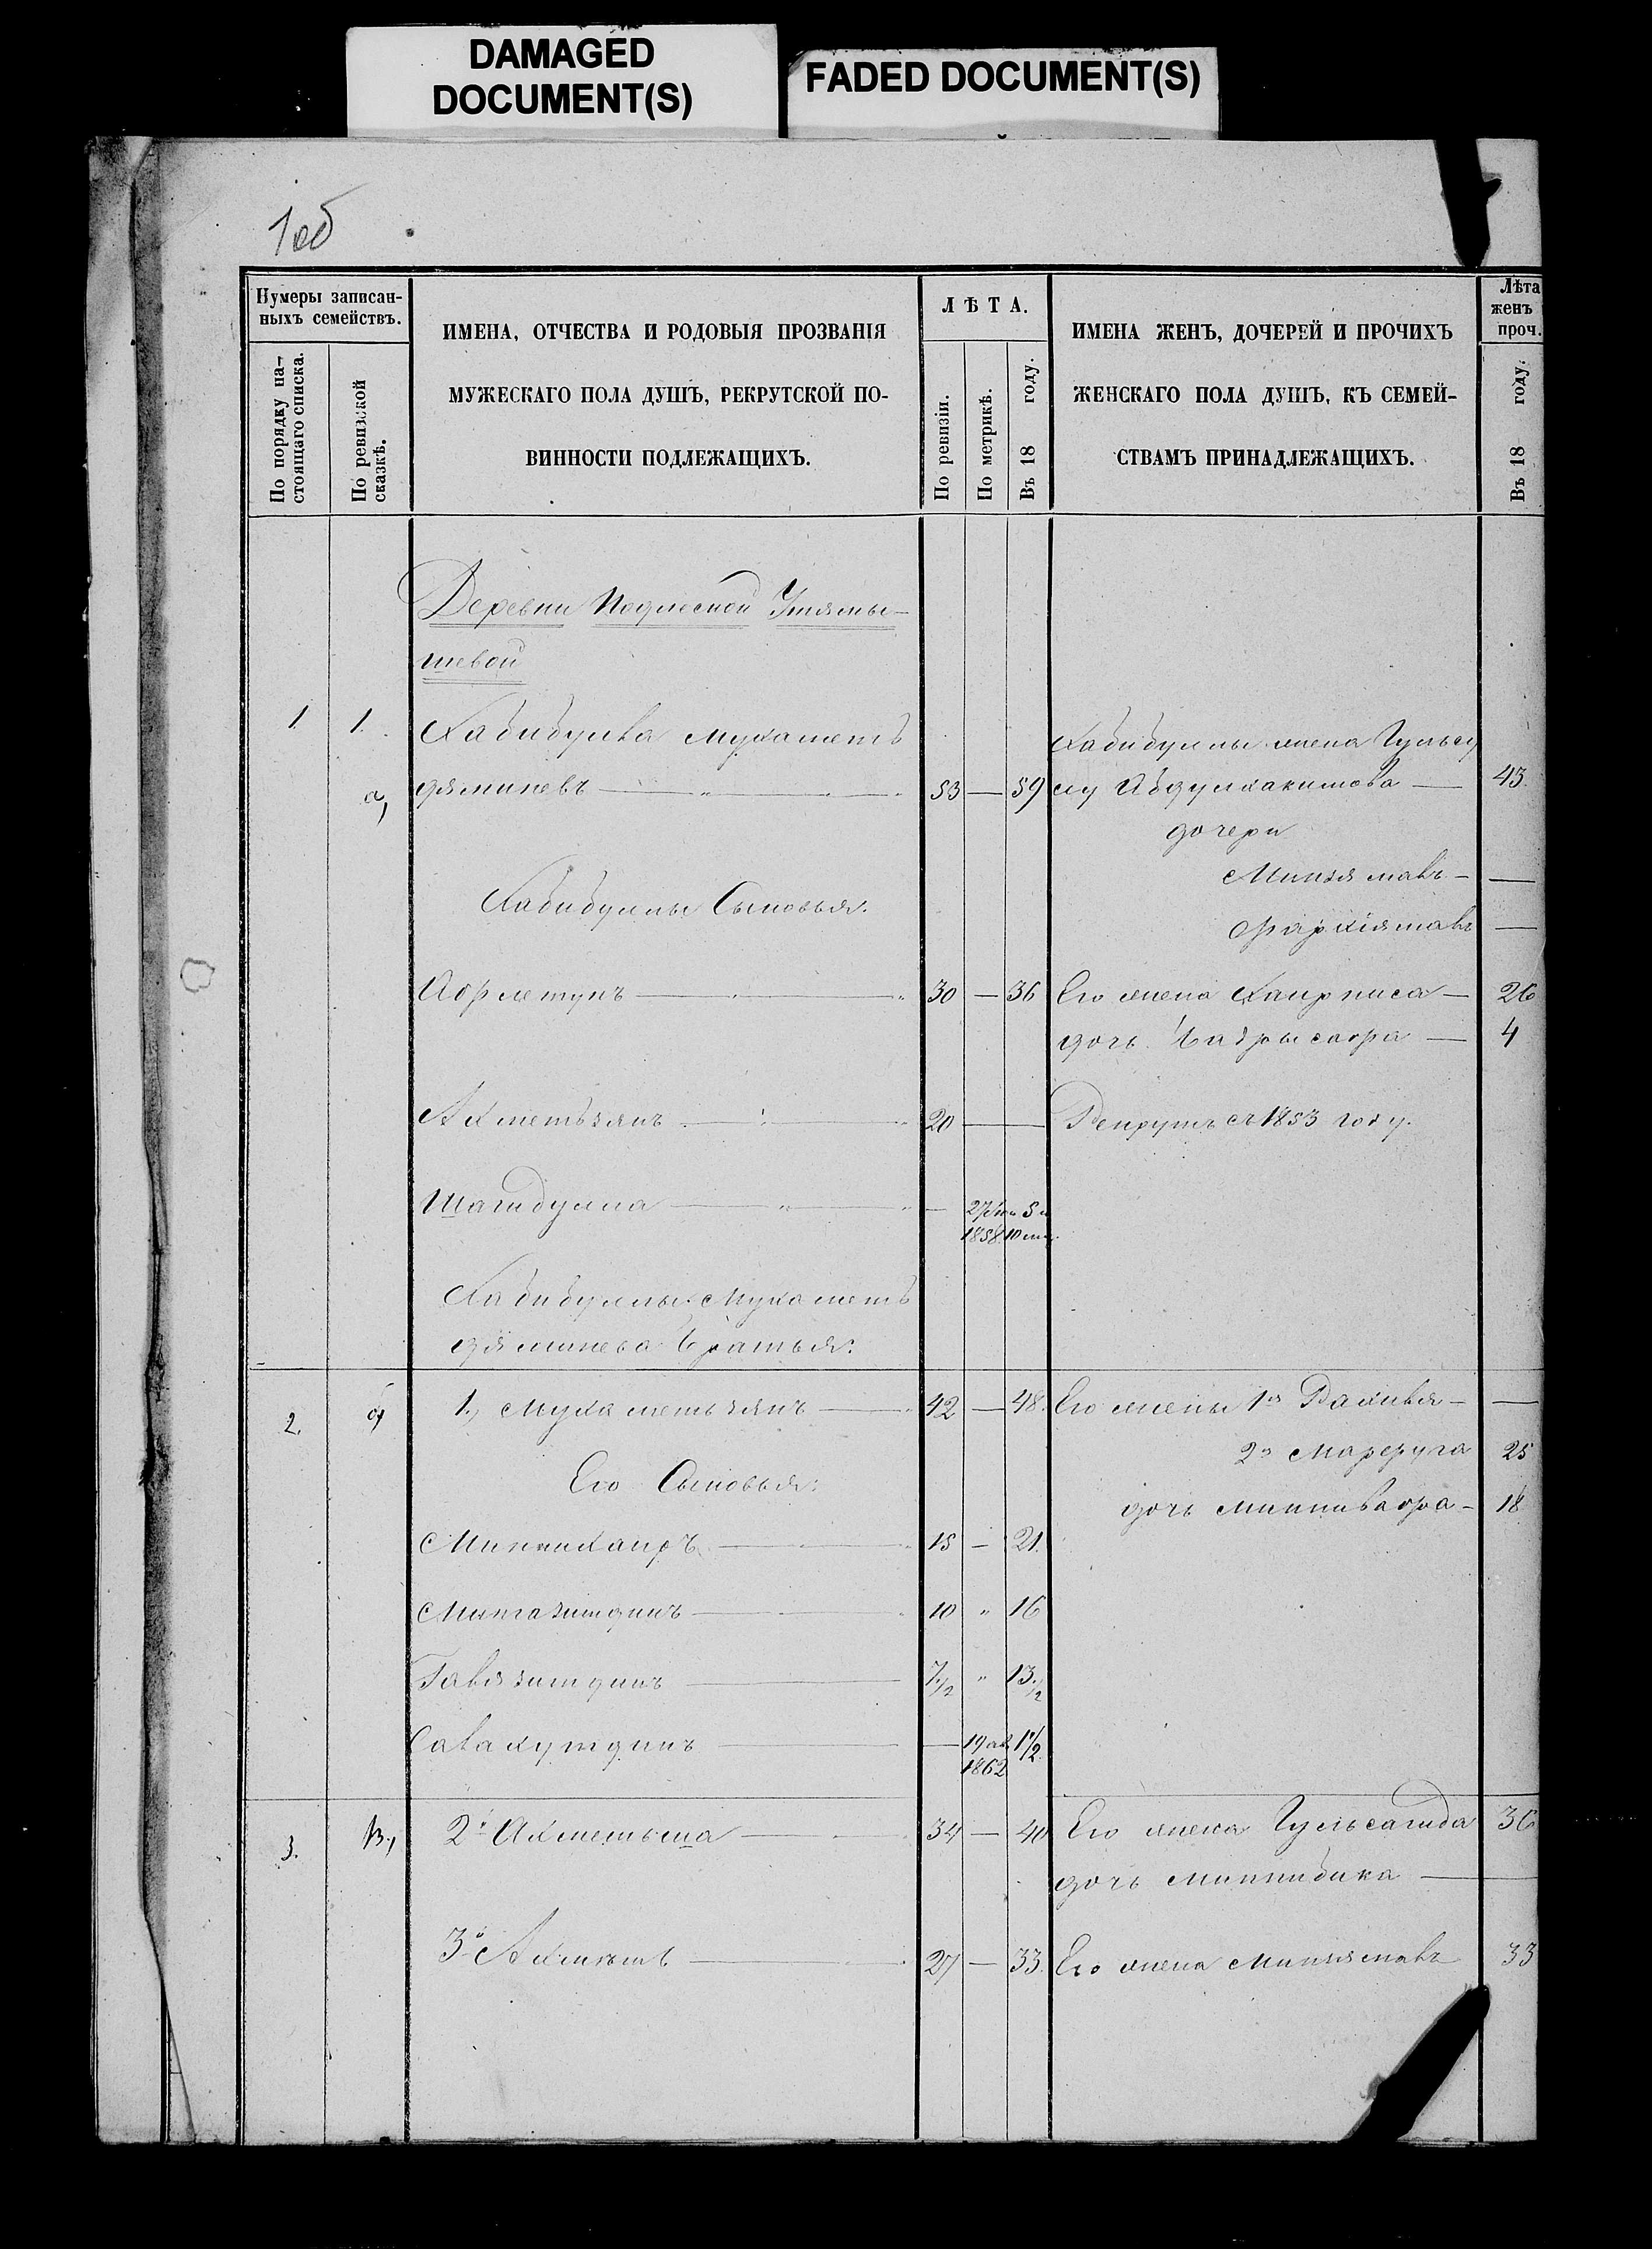 DAMAGED
DOCUMENT(S)
FADED DOCUMENT(S)
1об
Нумеры записан-
ныхъ семействъ.
По порядку на-
стоящаго списка.
По ревизской
сказкѣ.
ИМЕНА, ОТЧЕСТВА И РОДОВЫЯ ПРОЗВАНІЯ
МУЖЕСКАГО ПОЛА ДУШЪ, РЕКРУТСКОЙ ПО-
ВИННОСТИ ПОДЛЕЖАЩИХЪ.
ЛѢТА.
По ревизіи.
По метрикѣ.
Въ 18 году.
ИМЕНА ЖЕНЪ, ДОЧЕРЕЙ И ПРОЧИХЪ
ЖЕНСКАГО ПОЛА ДУШЪ, КЪ СЕМЕЙ-
СТВАМЪ ПРИНАДЛЕЖАЩИХЪ.
Лѣта
женъ
проч.
Въ 18 году.
Деревни Подлесной Утямы-
шевой
1. 1. Хабибулла Мухаметъ
Хабибуллы жена Гульсу
а, дяминевъ — 53 — 59
му Абдулхакимова — 45
дочери
Минзямалъ — —
Хабибуллы Сыновья:
Фархіямалъ —
30 — 36 Его жена Хаирниса — 26
дочь Бадрысафа — 4
Ахметьзянъ — 20 — Рекрутъ съ 1853 году.
Шагидулла — — 27 5
1858 10 мец.
Хабибуллы Мухаметъ
дяминева братья:
2. б, 1., Мухаметьзянъ — 42 — 48. Его жены 1я Рахиля — —
2я Марфуга 25
Его Сыновья:
дочь Минниважа — 18
Миннихаиръ — 15 — 21.
Мингазитдинъ — 10 „ 16
Гавязитдинъ — 7 1/2 „ 13 1/2
Савахутдинъ — — 19 ав 1 1/2
1862
3. в, 2й Ахметьша — 34 — 40 Его жена Гульсагида 36
дочь Миннибика —
3й Ахметъ — 27 — 33. Его жена Миннямалъ 33